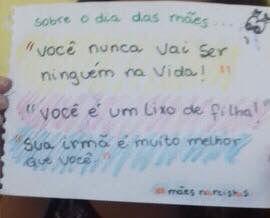 sobre o dia das mães...
"você nunca vai ser
ninguém na vida!"
"você é um lixo de filha!"
"Sua irmã é muito melhor
que você."
mães narcisistas